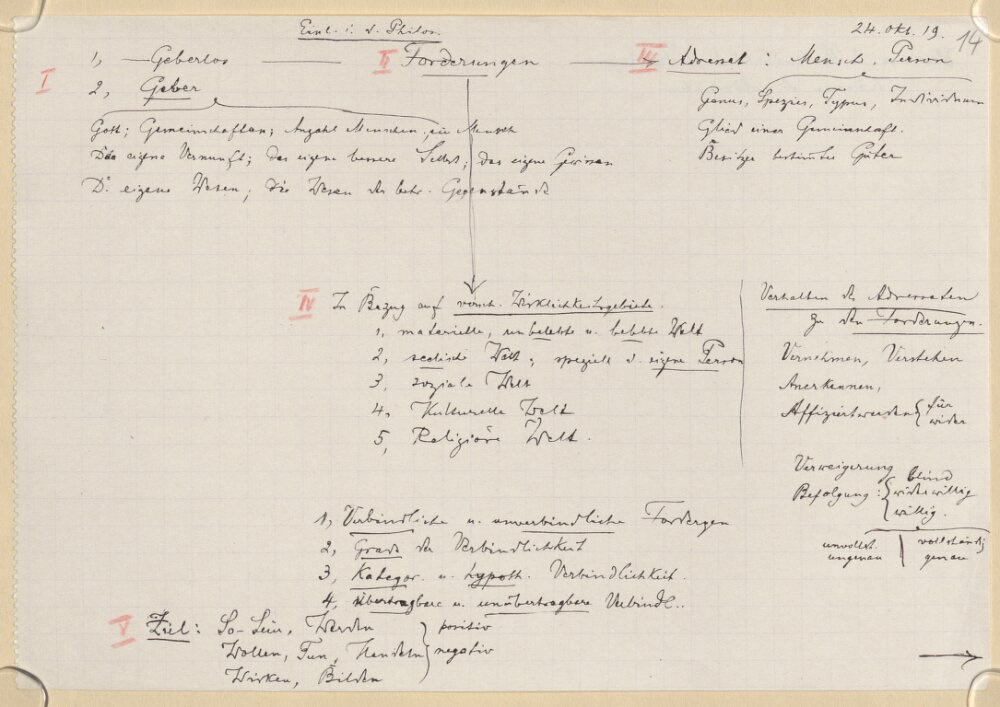 Einl. i. d. Philos.
24. Okt. 19.
14
I 1, — Geberlos — II Forderungen — III Adressat : Mensch. Person
2, Geber
Gott; Gemeinschaften; Anzahl Menschen, ein Mensch
Die eigene Vernunft; das eigene bessere Selbst; das eigene Gewissen
D. eigene Wesen; die Wesen der betr. Gegenstände
Genus, Spezies, Typus, Individuum
Glied einer Gemeinschaft.
Besitzer bestimmter Güter
IV In Bezug auf versch. Wirklichkeitsgebiete.
1, materielle, unbelebte u. belebte Welt
2, seelische Welt; speziell d. eigene Person
3, soziale Welt
4, Kulturelle Welt
5, Religiöse Welt.
Verhalten des Adressaten
zu den Forderungen.
Vernehmen, Verstehen
Anerkennen,
Affiziertwerden { für
wider
Verweigerung
Befolgung : { blind
widerwillig
willig.
unvollst. | vollständig
ungenau | genau
1, Verbindliche u. unverbindliche Fordergen
2, Grade der Verbindlichkeit
3, Kategor. u. hypoth. Verbindlichkeit.
4, übertragbare u. unübertragbare Verbindl..
V Ziel: So-Sein, Werden } positiv
Wollen, Tun, Handeln } negativ
Wirken, Bilden